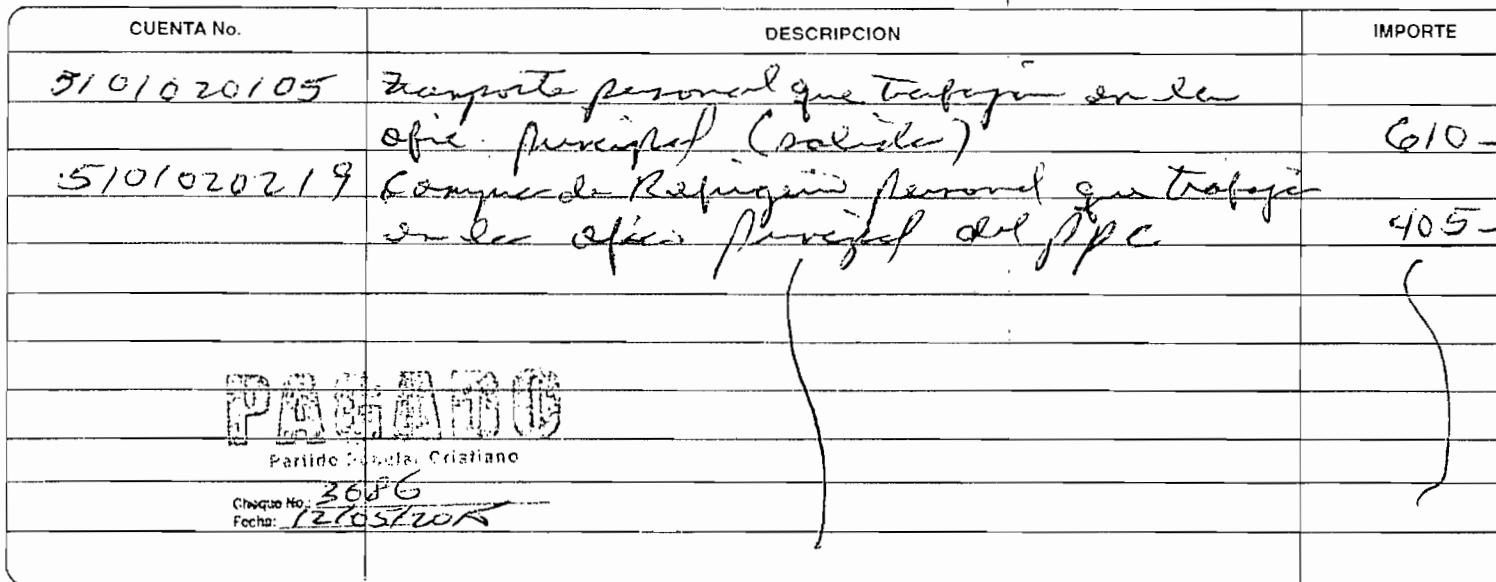 CUENTA No. DESCRIPCION IMPORTE
5101020105 Transporte personal que trabajan en la
ofic. principal (salida) 610-
5101020219 Compra de Refrigerio personal que trabaja
en la ofic. principal del PPC 405-
PAGADO
Partido Popular Cristiano
Cheque No.: 3686
Fecha: 12/05/2015